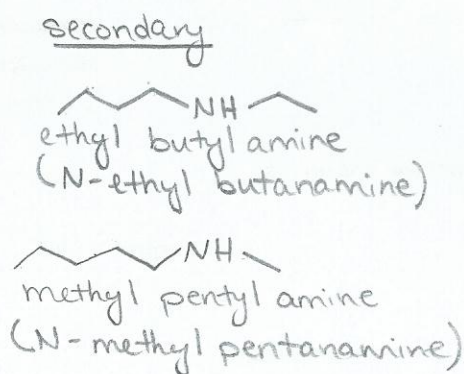 secondary
NH
ethyl butyl amine
(N-ethyl butanamine)
NH
methyl pentyl amine
(N-methyl pentanamine)